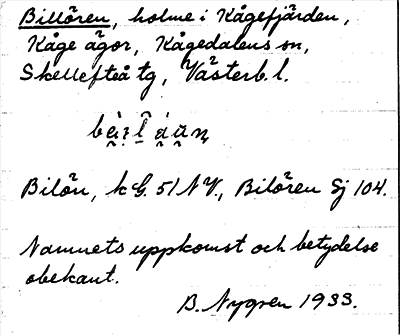 Billören, holme i Kågefjärden,
Kåge ägor, Kågedalens sn,
Skellefteå tg, Västerb. l.
Bilön, kG. 51 NV., Bilören Sj 104.
Namnets uppkomst och betydelse
obekant.
B. Nygren 1933.